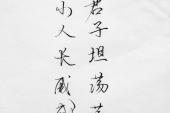 君子坦荡
小人长戚